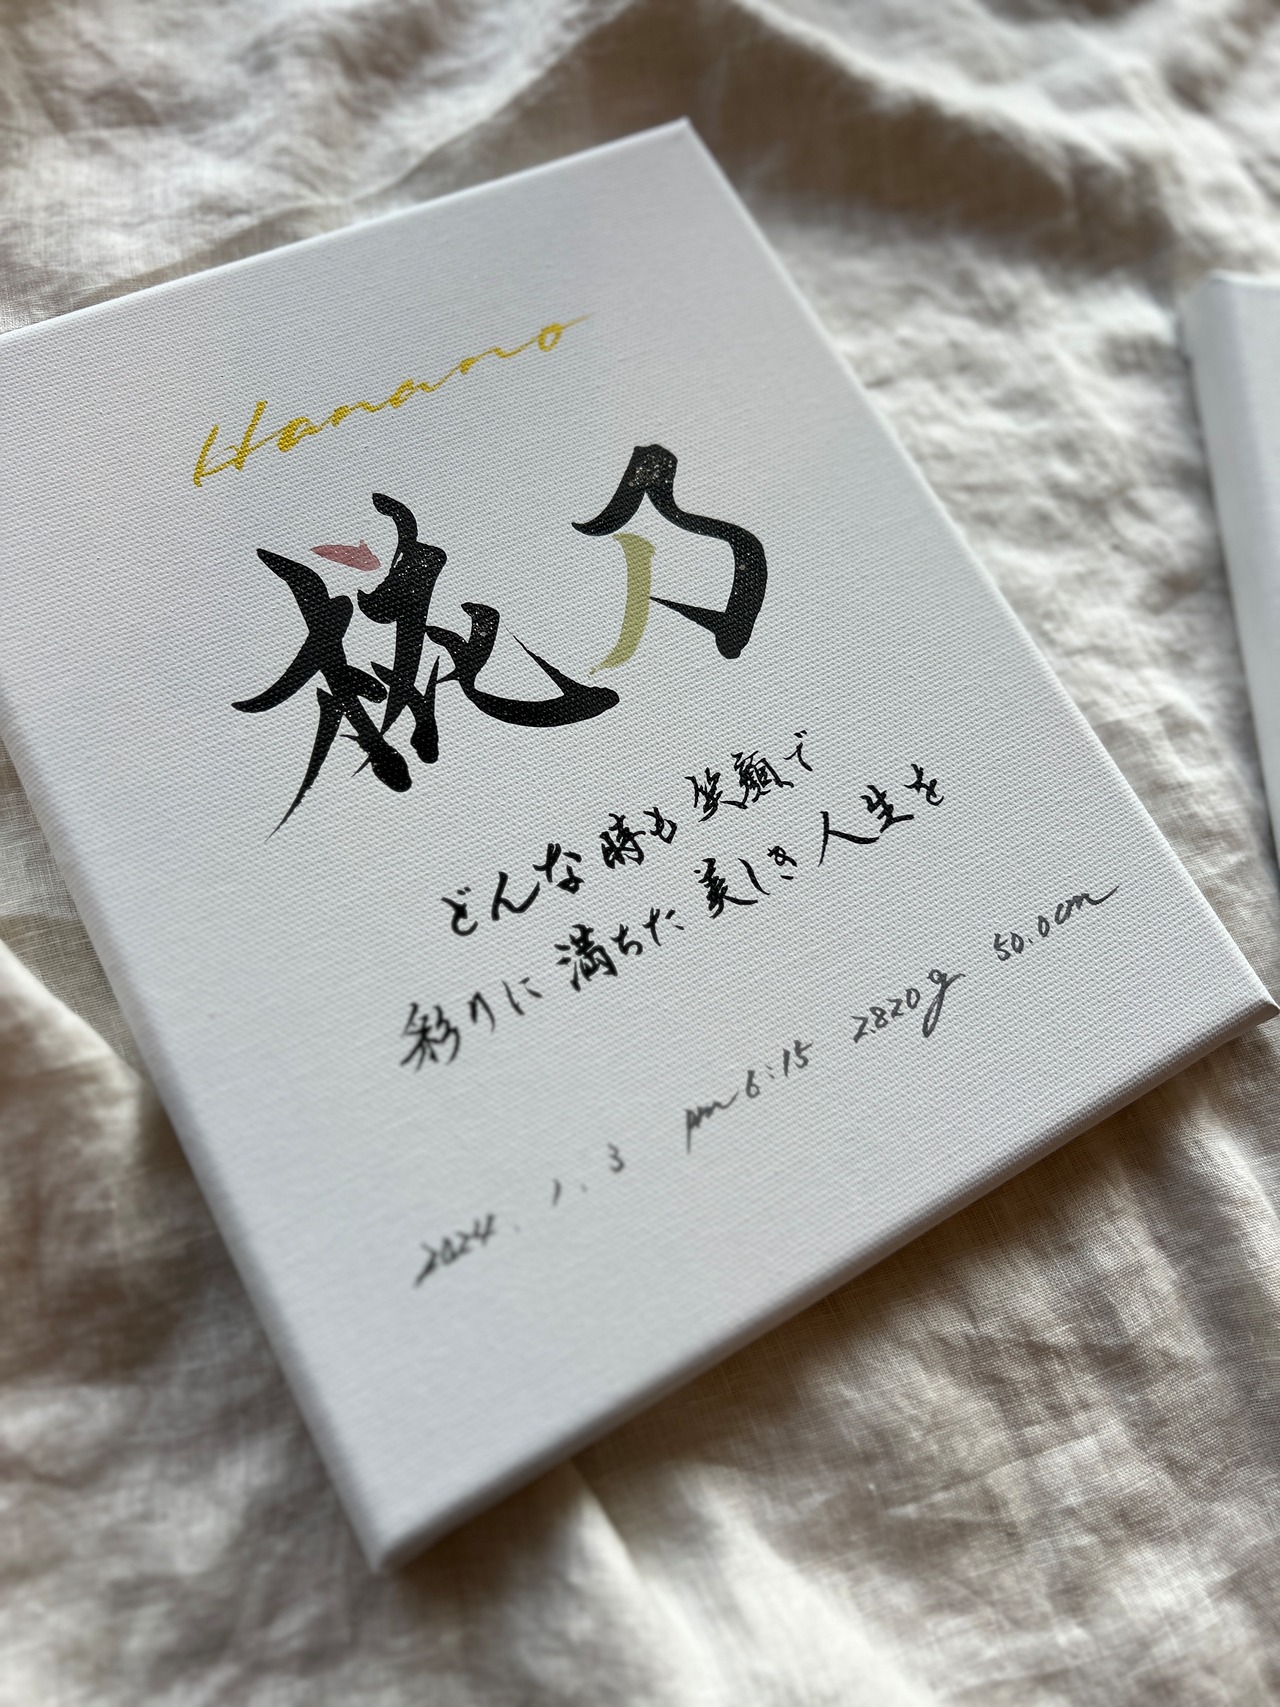 Hanano
椛乃
どんな時も笑顔で
彩りに満ちた美しき人生を
2024.1.3 pm 6:15 2820g 50.0cm